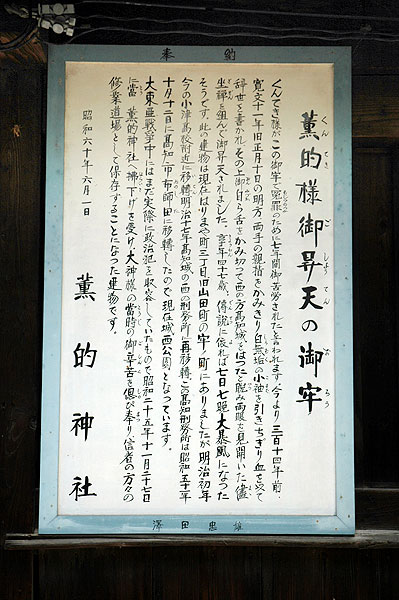 奉納
薫的様御昇天の御牢
くんてき様がこの御牢で冤罪のために七年間御苦労されたと言われます。今より三百十四年前
寛文十一年旧正月十日の明方、両手の親指をかみきり白無垢の小袖を引きちぎり血を以て
辞世を書かれその上御自ら舌をかみつって西の方高知城をはつたと睨み両眼を見開いた儘
坐禅を組んで御昇天されました。享年四十七歳、傳說に依れば七日七晩大暴風になつた
そうです。此の建物は現在はりまや町三丁目旧山田町の牢ノ町にありましたが明治初年
今の小津高校附近に移轉明治十七年高知城の西の刑務所に再移轉この高知刑務所は昭和五十一年
十月十二日に高知市布師田に移轉したので現在城西公園となっています。
大東亜戦争中にはまだ実際に政治犯を収容していたもので昭和二十五年十一月二十七日
に当薫的神社へ拂下げを受け大神様の当時の御辛苦を偲び奉り、信者の方々の
修業道場として保存することになった建物です。
昭和六十年六月一日
薫的神社
澤田忠雄